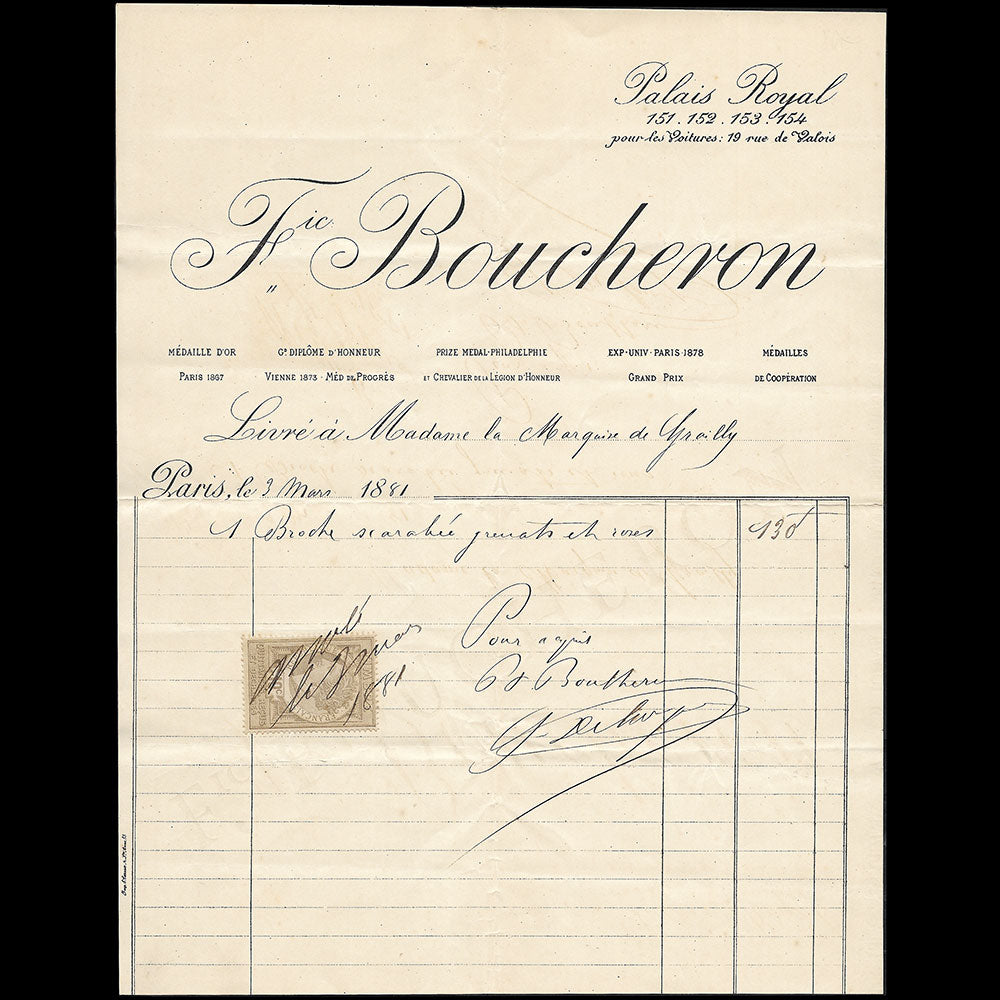 Palais Royal
151. 152. 153. 154
pour les Voitures: 19 rue de Valois
Fic Boucheron
MÉDAILLE D'OR G^D DIPLÔME D'HONNEUR PRIZE MEDAL·PHILADELPHIE EXP·UNIV·PARIS·1878 MÉDAILLES
PARIS 1867 VIENNE 1873 · MÉD DE PROGRÈS ET CHEVALIER DE LA LÉGION D'HONNEUR GRAND PRIX DE COOPÉRATION
Livré à Madame la Marquise de Grailly
Paris, le 3 Mars 1881
1 Broche scarabée grenats et roses 130
Pour acquis
Boucheron
le 3 mars
1881